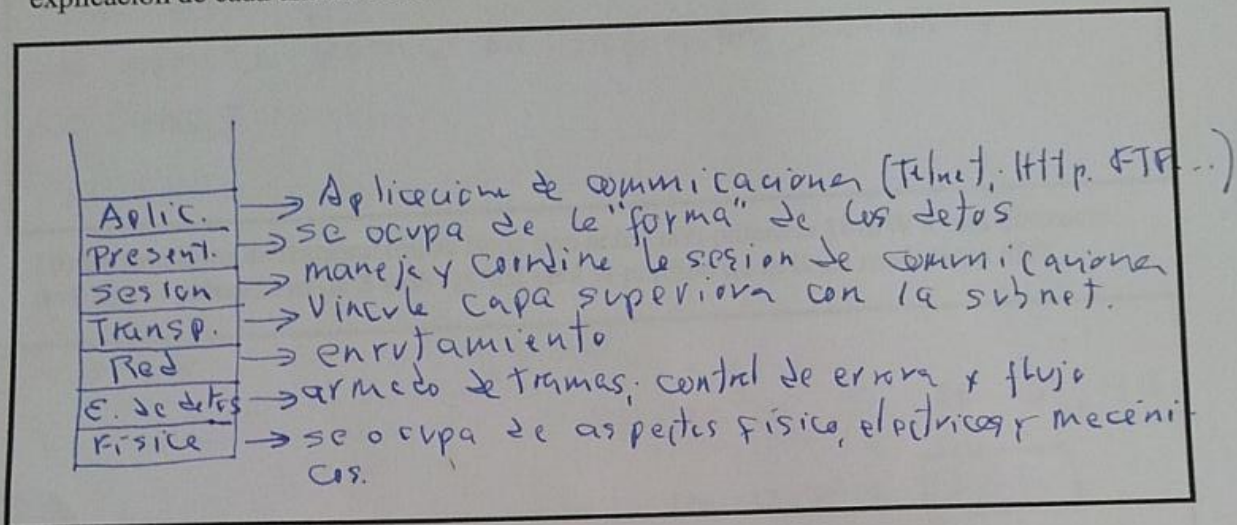 explicación de cada
Aplic. → Aplicaciones de comunicaciones (Telnet, Http. FTP...)
Present. → se ocupa de la "forma" de los datos
sesion → maneja y coordina la sesion de comunicaciones
Transp. → Vincula capas superiores con la subnet.
Red → enrutamiento
E. de datos → armado de tramas, control de errores y flujo
Fisica → se ocupa de aspectos físico, electricos y mecáni
cos.